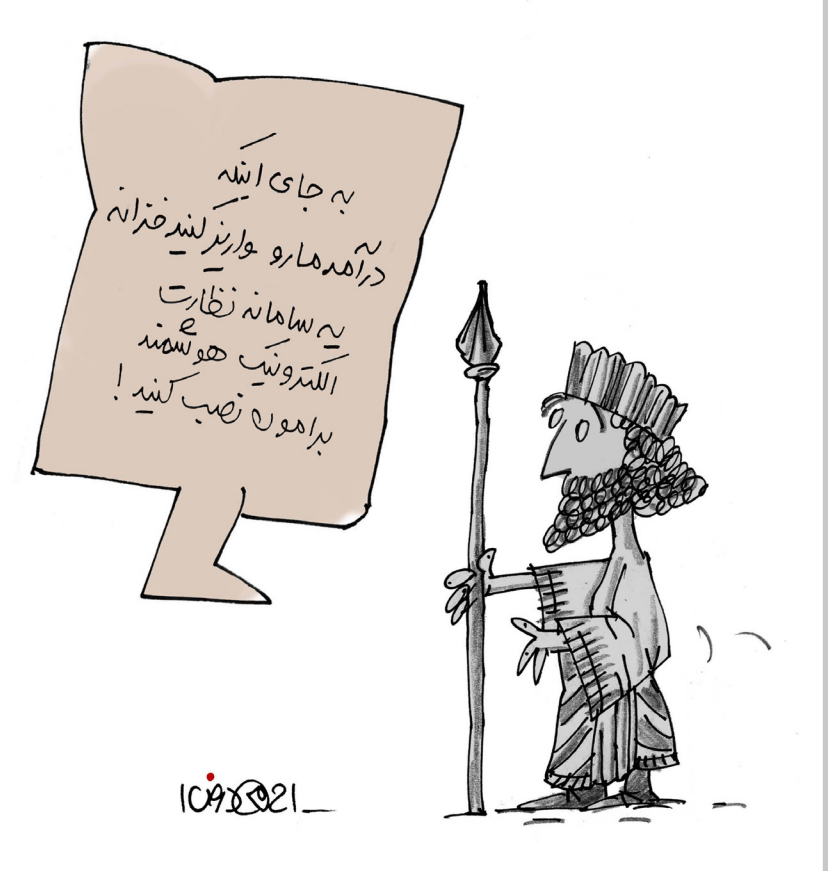 به جای اینکه
درآمد ما رو واریز کنید خزانه
یه سامانه نظارت
الکترونیک هوشمند
برامون نصب کنید!